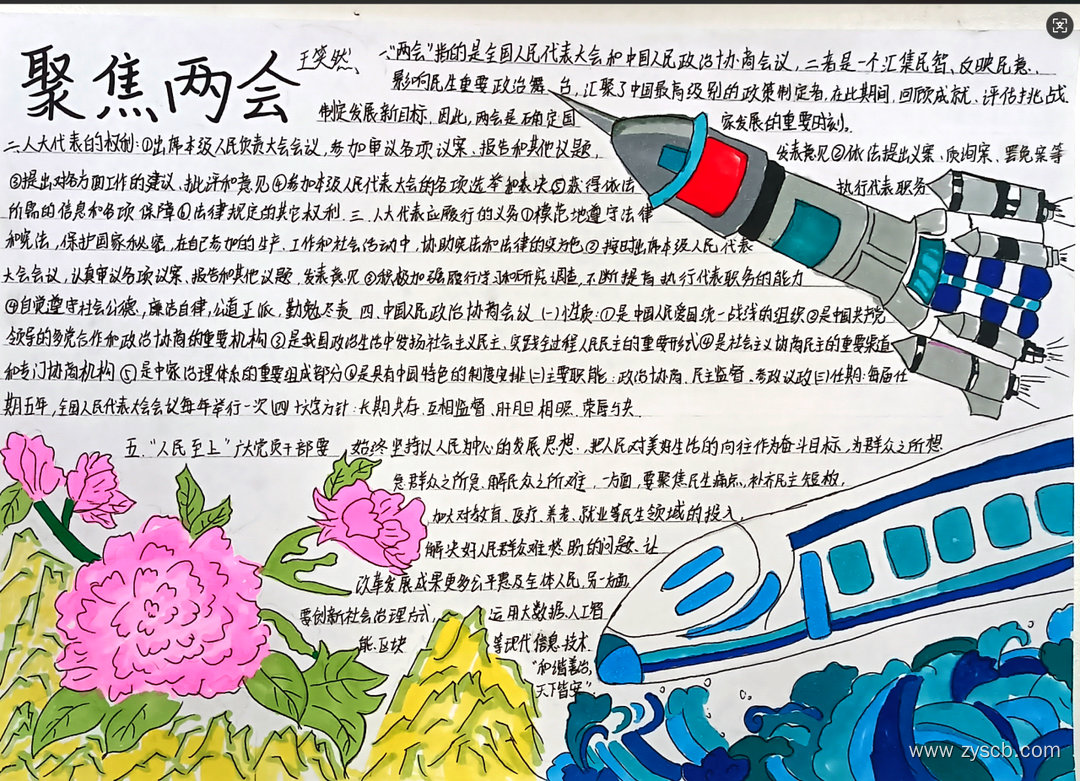 聚焦两会
王笑然
一、"两会"指的是全国人民代表大会和中国人民政治协商会议，二者是一个汇集民智、反映民意、
影响民生重要政治舞台，汇聚了中国最高级别的政策制定者，在此期间，回顾成就、评估挑战、
制定发展新目标，因此，两会是确定国家发展的重要时刻。
二、人大代表的权利:①出席本级人民负责大会会议，参加审议各项议案、报告和其他议题，发表意见②依法提出议案、质询案、罢免案等
③提出对各方面工作的建议、批评和意见④参加本级人民代表大会的各项选举和表决⑤获得依法执行代表职务
所需的信息和各项保障⑥法律规定的其它权利. 三、人大代表应履行的义务①模范地遵守法律
和宪法，保护国家秘密，在自己参加的生产、工作和社会活动中，协助宪法和法律的实施②按时出席本级人民代表
大会会议，认真审议各项议案、报告和其他议题，发表意见③积极加强履行学习和研究调查，不断提高执行代表职务的能力
④自觉遵守社会公德，廉洁自律，公道正派，勤勉尽责 四、中国人民政治协商会议 (一)性质:①是中国人民爱国统一战线的组织②是中国共产党
领导的多党合作和政治协商的重要机构③是我国政治生活中发扬社会主义民主、实践全过程人民民主的重要形式④是社会主义协商民主的重要渠道
和专门协商机构⑤是中家治理体系的重要组成部分⑥是具有中国特色的制度安排(二)主要职能:政治协商、民主监督、参政议政(三)任期:每届任
期五年，全国人民代表大会会议每年举行一次(四)十六字方针:长期共存、互相监督、肝胆相照、荣辱与共
五、"人民至上"广大党员干部要始终坚持以人民为中心的发展思想，把人民对美好生活的向往作为奋斗目标，为群众之所想、
急群众之所急、解民众之所难，一方面，要聚焦民生痛点、补齐民主短板，
加大对教育、医疗、养老、就业等民生领域的投入，
解决好人民群众难愁盼的问题、让
改革发展成果更多公平惠及全体人民，另一方面，
要创新社会治理方式，运用大数据、人工智
能、区块等现代信息技术，
"和谐善治，
天下皆安".
www.zyscb.com